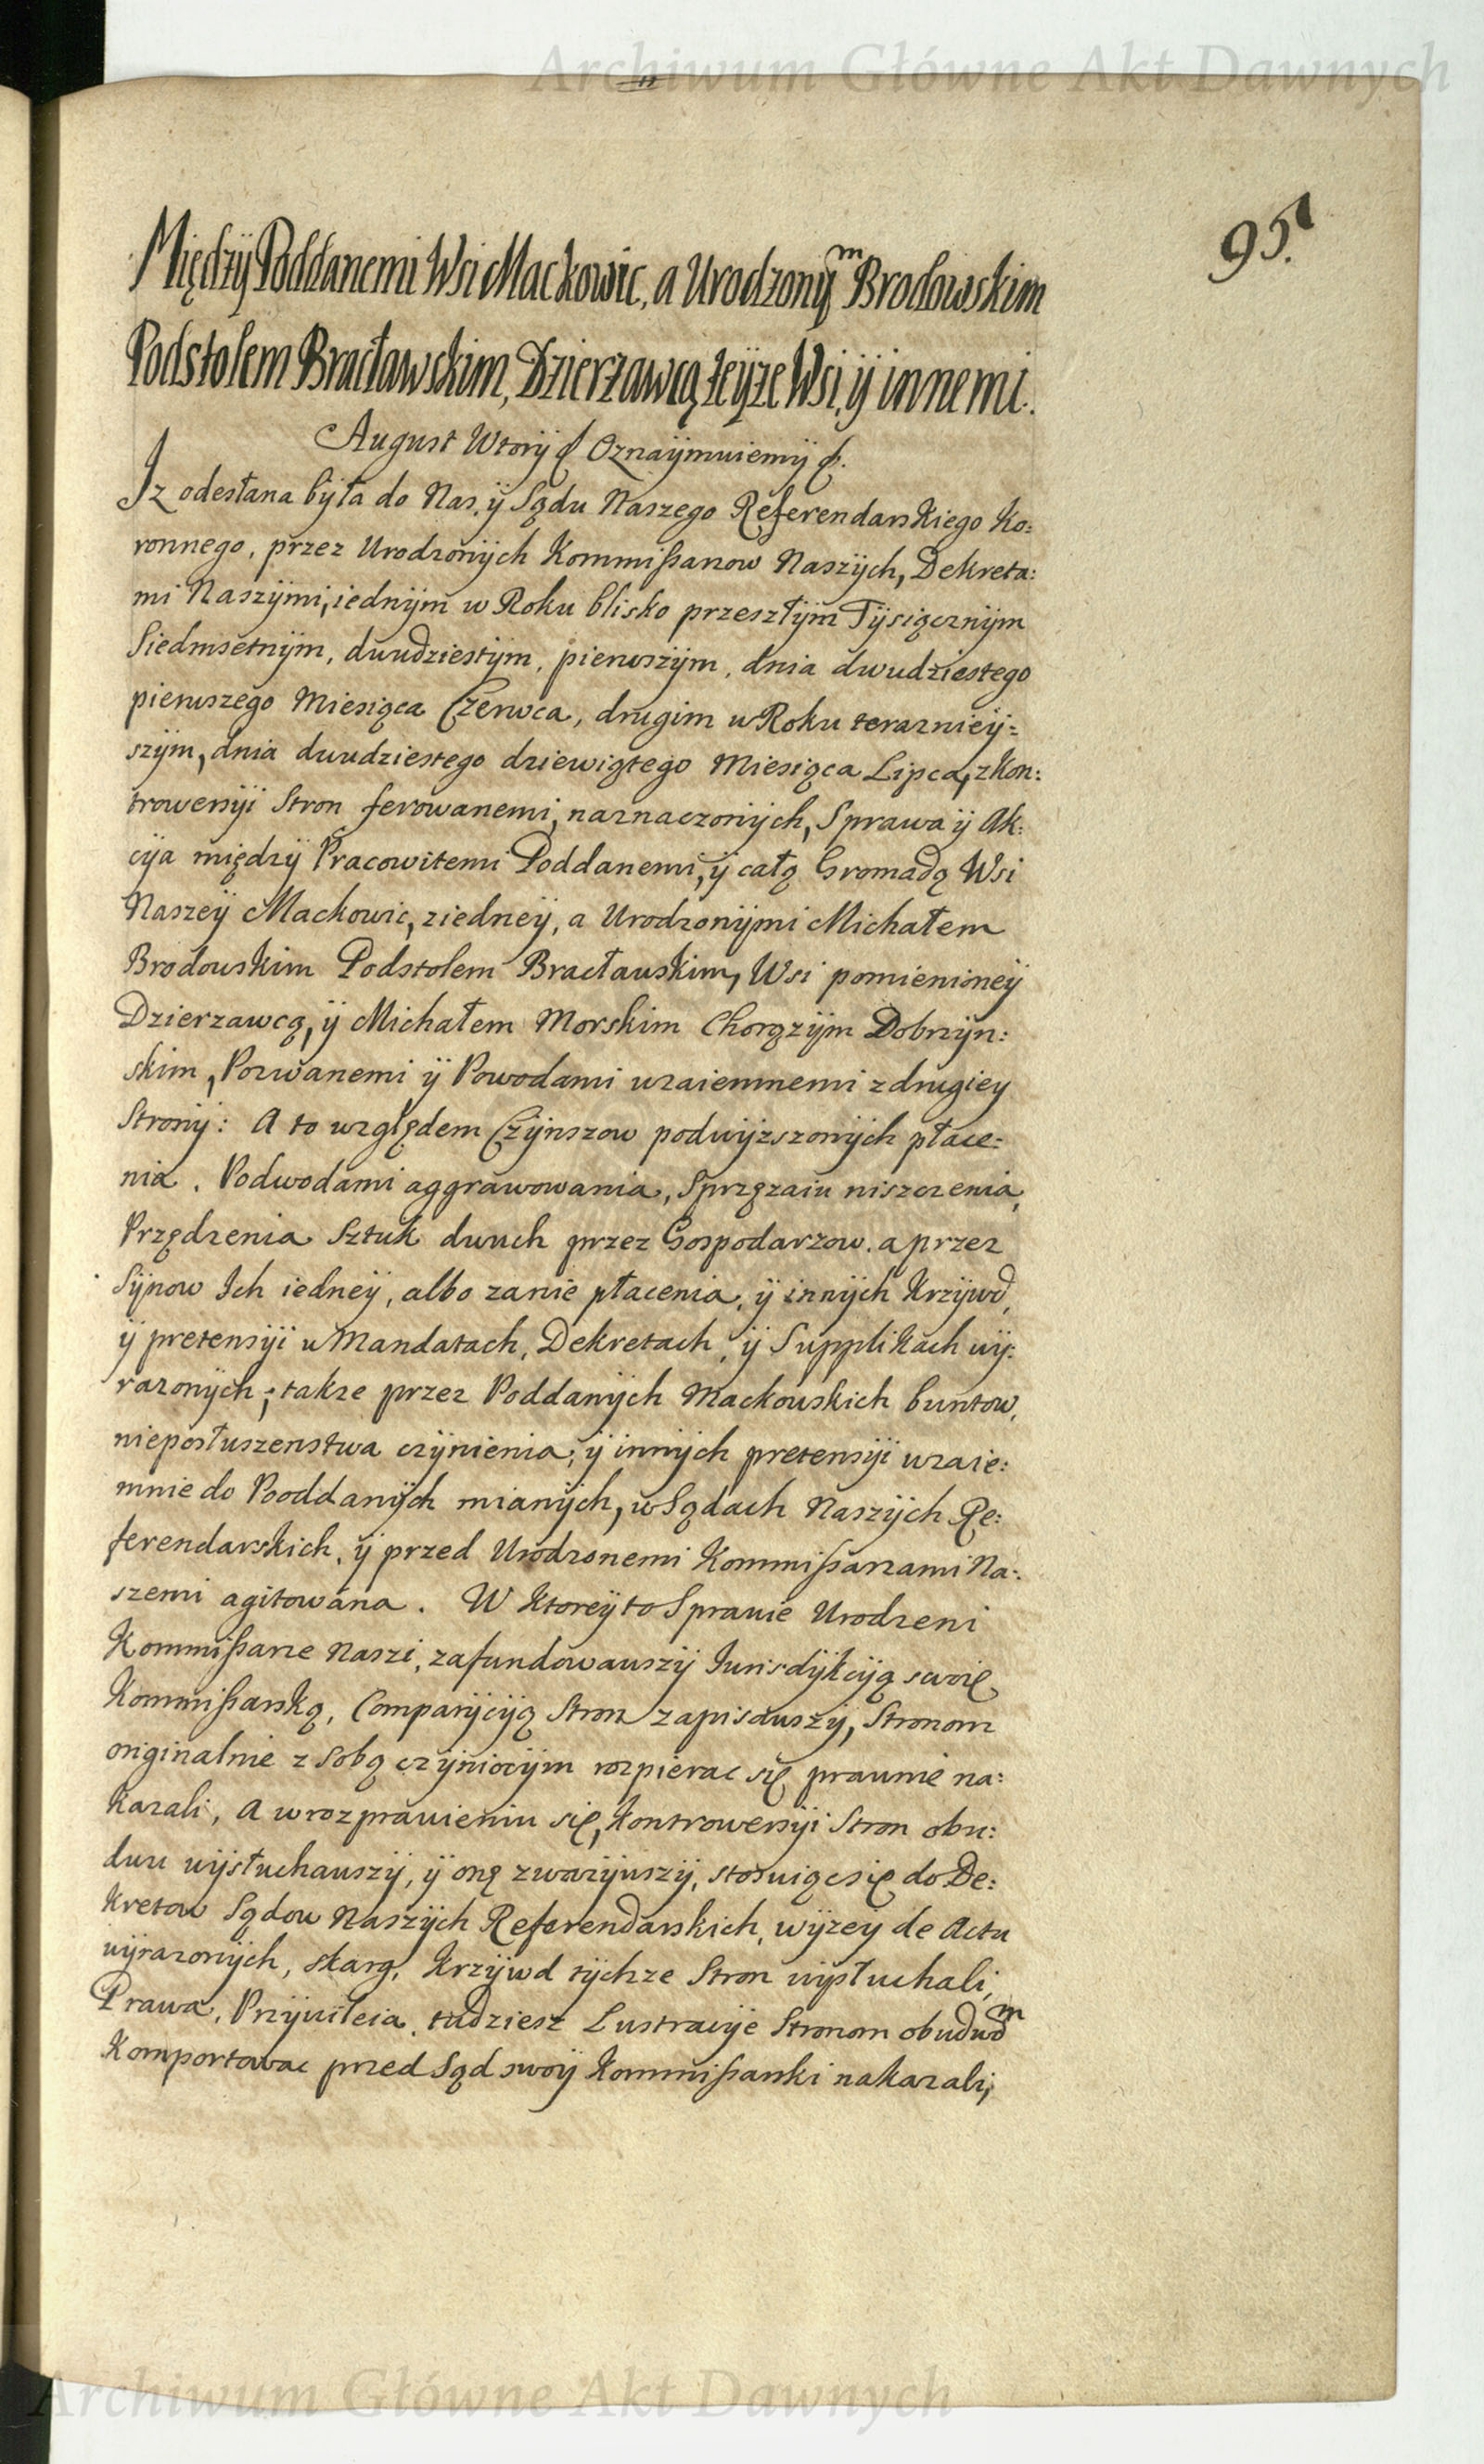 Archiwum Główne Akt Dawnych
95.
Między Poddanemi Wsi Mackowic, a Urodzonym Brodowskim
Podstolem Bracławskim, Dzierzawcą teyze Wsi, y innemi.
August Wtory & Oznaymuiemy &.
Iz odesłana była do Nas, y Sądu Naszego Referendarskiego Ko:
ronnego, przez Urodzonych Kommißarzow Naszych, Dekreta:
mi Naszymi, iednym w Roku blisko przeszłym Tysiącznym
Siedmsetnym, dwudziestym, pierwszym, dnia dwudziestego
pierwszego Miesiąca Czerwca, drugim w Roku terazniey:
szym, dnia dwudziestego dziewiątego Miesiąca Lipca, z kon:
trowersyi Stron ferowanemi, naznaczonych, Sprawa y Ak:
cya między Pracowitemi Poddanemi, y całą Gromadą Wsi
Naszey Mackowic, z iedney, a Urodzonymi Michałem
Brodowskim Podstolem Bracławskim, Wsi pomienioney
Dzierzawcą, y Michałem Morskim Chorązym Dobrzyn:
skim, Pozwanemi y Powodami wzaiemnemi z drugiey
Strony: A to względem Czynszow podwyzszonych płace:
nia. Podwodami aggrawowania, Sprzęzaiu niszczenia,
Przędzenia Sztuk dwuch przez Gospodarzow. a przez
Synow Ich iedney, albo zanie płacenia, y innych Krzywd,
y pretensyi w Mandatach, Dekretach, y Supplikach wy:
razonych; takze przez Poddanych Mackowskich buntow,
nieposłuszenstwa czynienia; y innych pretensyi wzaie:
mnie do Pooddanych mianych, w Sądach Naszych Re:
ferendarskich, y przed Urodzonemi Kommißarzami Na:
szemi agitowana. W ktorey to Sprawie Urodzeni
Kommißarze Naszi, zafundowawszy Iurisdykcyą swoię
Kommißarską, Comparycyą Stron zapisawszy, Stronom
originalnie z sobą czyniącym rozpierac się prawnie na:
kazali, A w rozprawieniu się, Kontrowersyi Stron obu:
dwu wysłuchawszy, y onę zwazywszy, stosuiąc się do De:
kretow Sądow Naszych Referendarskich, wyzey de Actu
wyrazonych, skarg, Krzywd tychze Stron wysłuchali,
Prawa, Przywileia, tudziesz Lustracye Stronom obudwom
Komportowac przed Sąd swoy Kommißarski nakazali;
Archiwum Główne Akt Dawnych